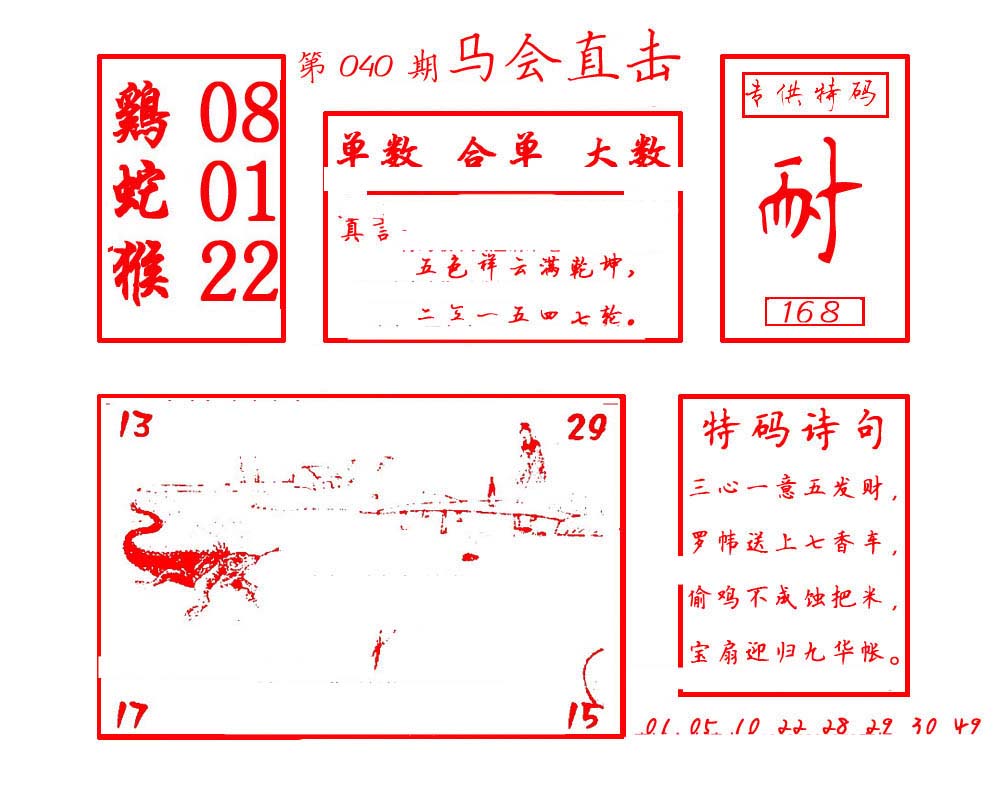 第 040 期 马会直击
鷄 08
蛇 01
猴 22
单数 合单 大数
真言
五色祥云满乾坤，
二三一五四七轮。
专供特码
耐
168
13
29
17
15
特码诗句
三心一意五发财，
罗帏送上七香车，
偷鸡不成蚀把米，
宝扇迎归九华帐。
01 05 10 22 28 29 30 49